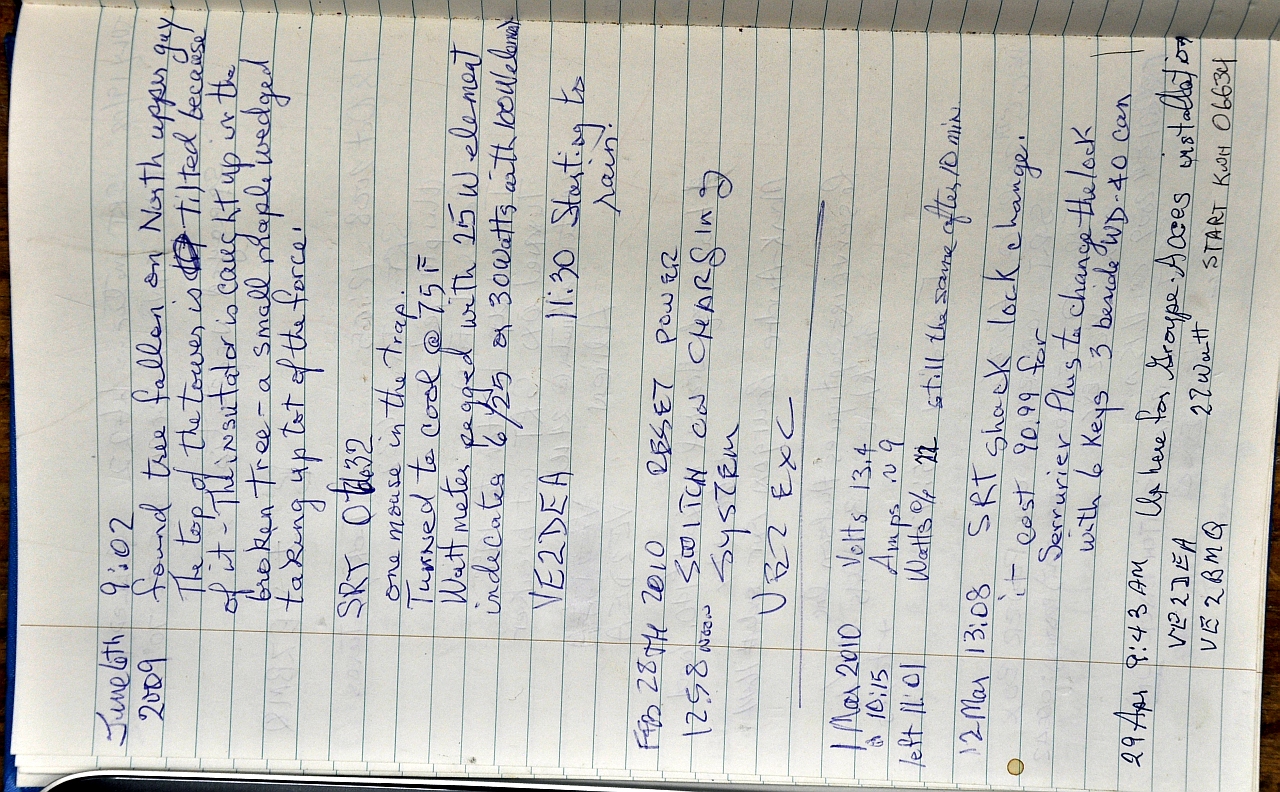 June 6th 9:02
2009 found tree fallen on North upper guy
The top of the tower is tilted because
of it - The insultator is caught up in the
broken tree - a small maple wedged
taking up tot of the force!
SRT
one mouse in the trap.
Turned to cool @ 75 F
Watt meter pegged with 25 W element
indecates 6/25 or 30 Watts with 100W element
VE2DEA 11:30 Starting to
rain.
FEB 28TH 2010 RESET POWER
12:58 noon SWITCH ON CHARGING
SYSTEM
VE2 EXC
1 Mar 2010 Volts 13.4
@ 10:15 Amps .09
left 11:01 Watts o/p 22 still the same after 10 min.
12 Mar 13:08 SRT shack lock change.
it cost 90.99 for
Serrurier Plus to change the lock
with 6 Keys 3 beside WD-40 can
29 Apr 9:43 AM Up here for Groupe-Acces installation
VE2DEA
VE2BMQ 22 Watt START KWH 06634